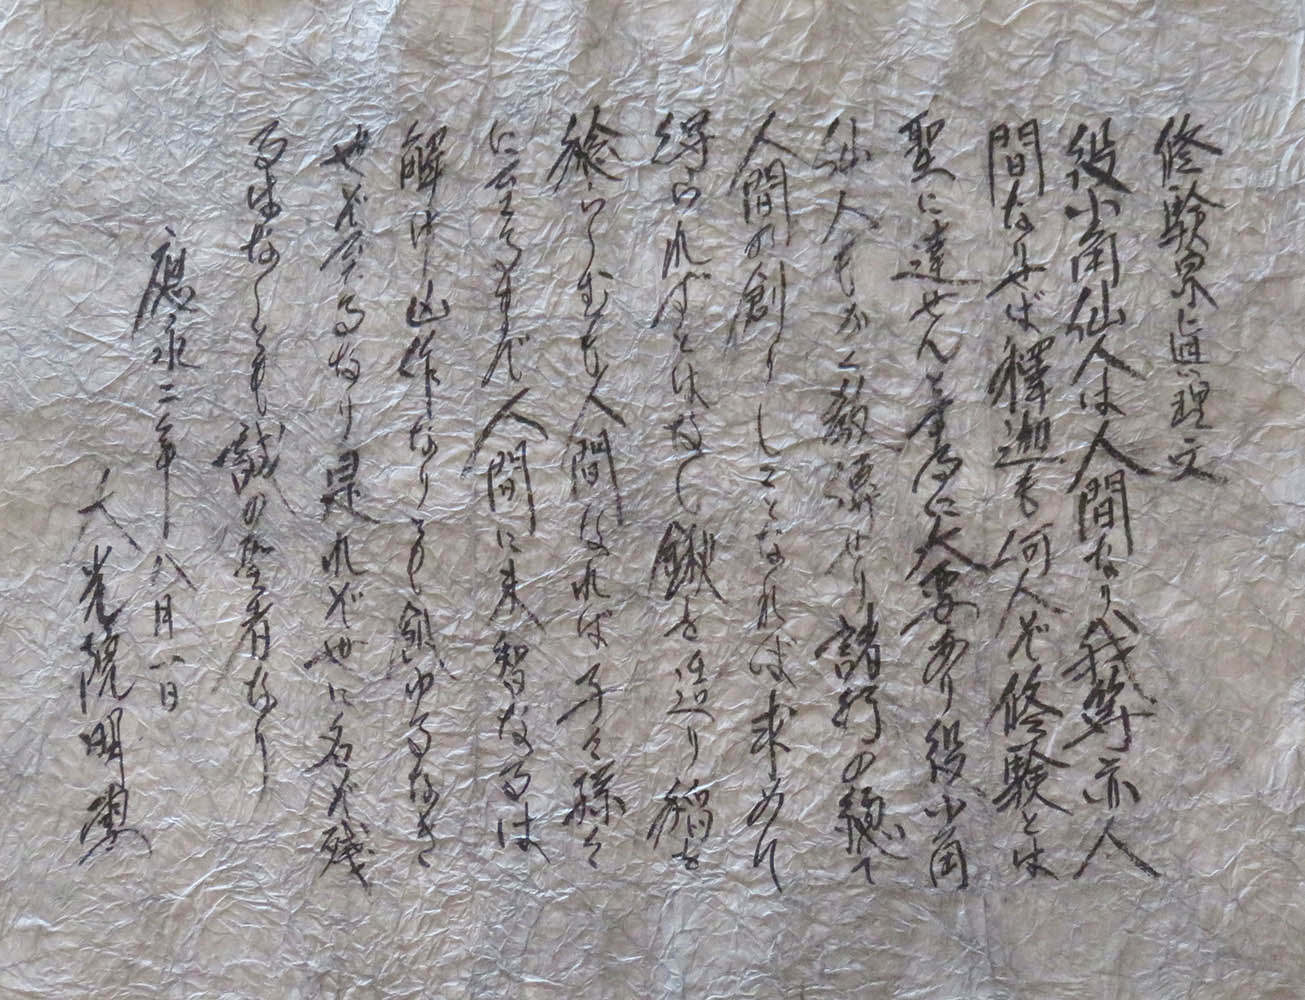 修験宗真理文
役小角仙人は人間なり我等亦人
間なりせば釋迦も何人ぞ修験とは
聖に達せんとするに大要あり役小角
仙人もかく教導せり諸行の総て
人間の創りしことなれば求めて
得られずとはなし鍬を造り稲を
稔らしむも人間なれば子々孫々
に至るまで人間に未智なるは
解け出作なりとも飢ゆるなき
世ぞ今るなり是れぞ世に名ぞ残
るはなくも誠の聖者なり
應永二年八月一日
大光院明雲